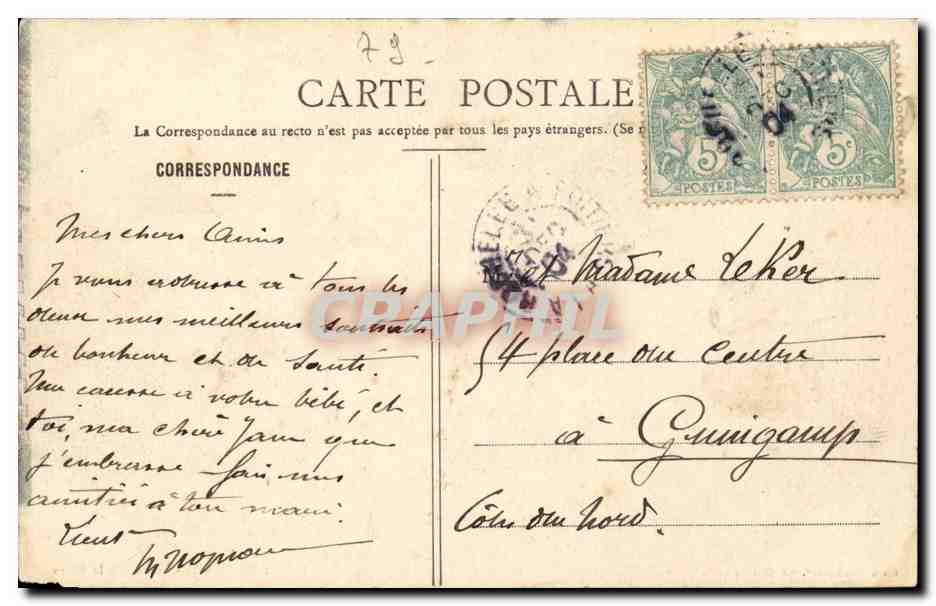 79
CARTE POSTALE
La Correspondance au recto n'est pas acceptée par tous les pays étrangers. (Se
CORRESPONDANCE
Mes chers Amis
Je vous adresse à tous les
deux mes meilleurs souhaits
de bonheur et de santé.
Une caresse à votre bébé, et
toi, ma chère Jane que
j'embrasse fais mes
amitiés à ton mari.
M et Madame Le Ker
54 place du Centre
à Guingamp
Côtes du Nord.
5c
POSTES
5c
POSTES
04
CRAPHIL